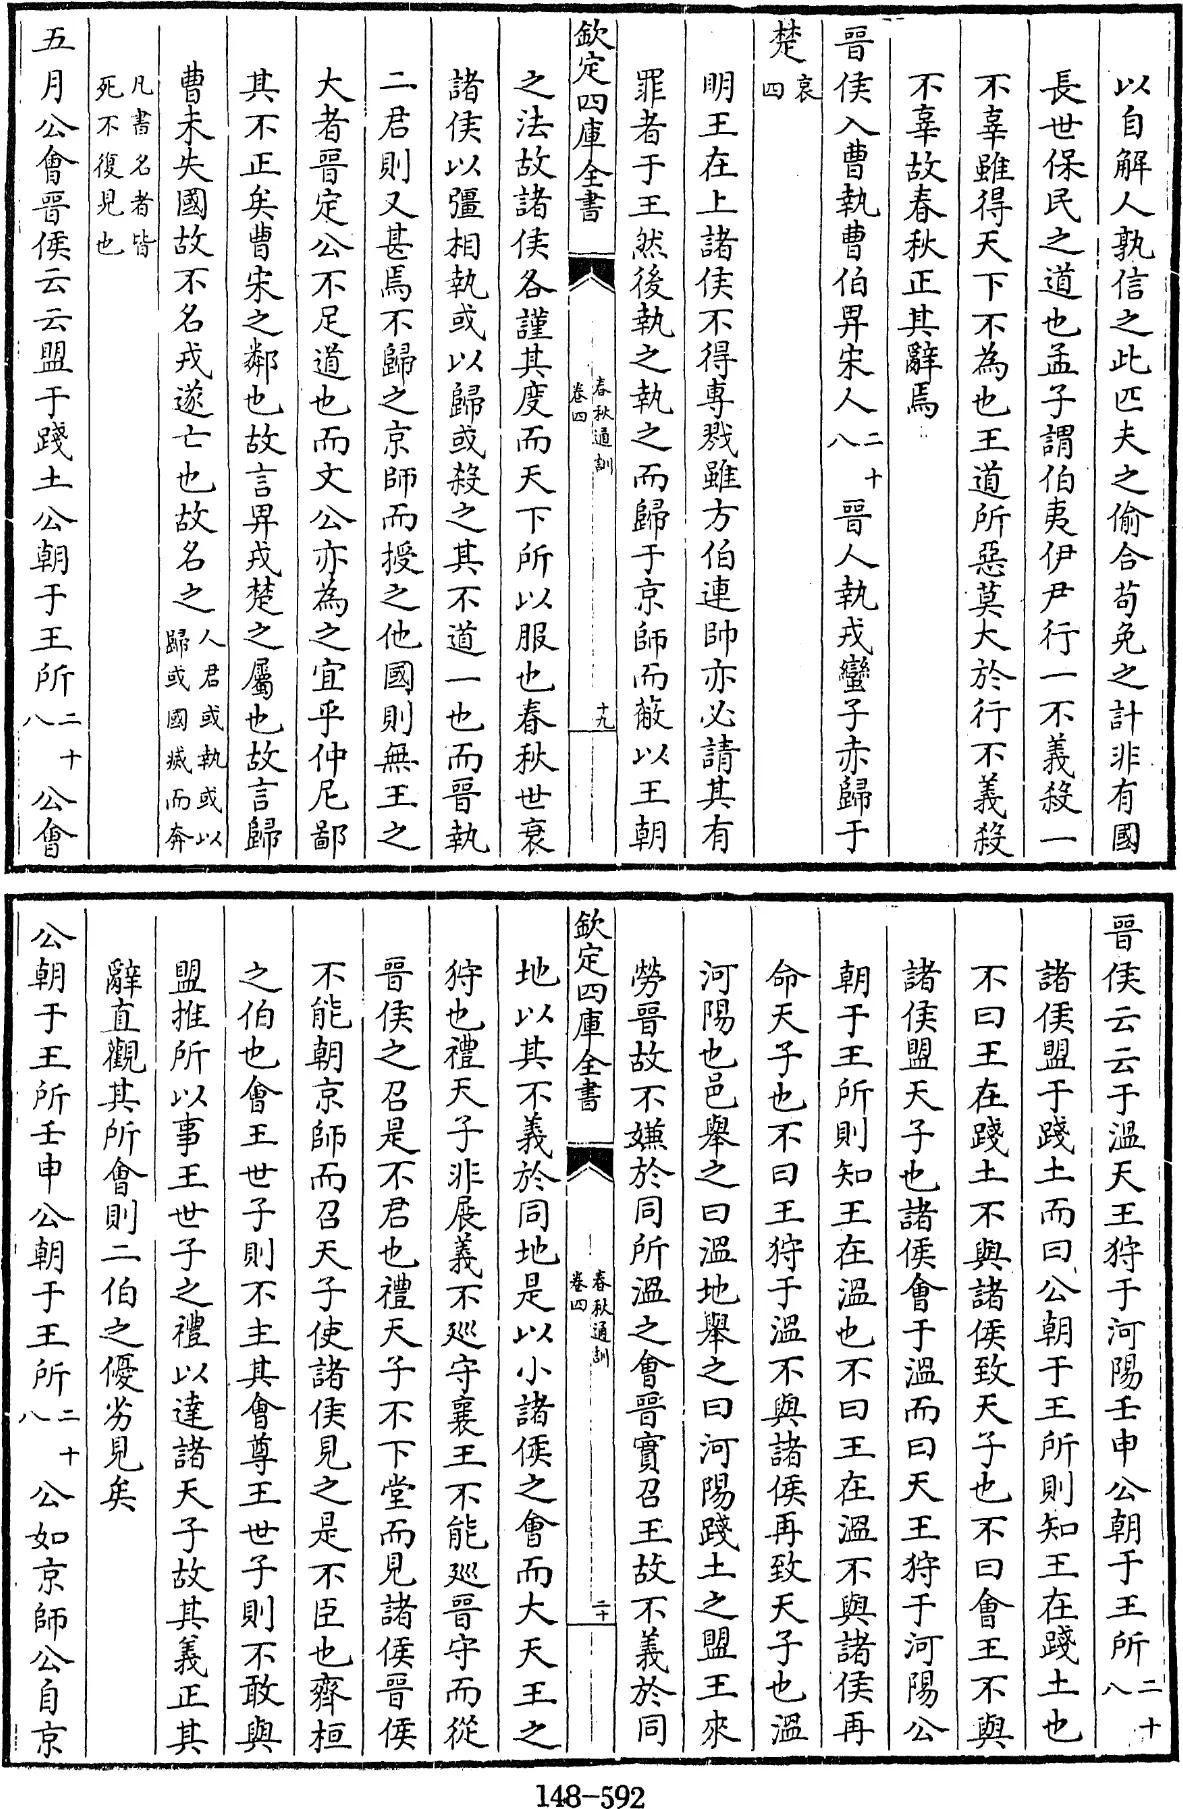 以自解人孰信之此匹夫之偷合苟免之計非有國
長世保民之道也孟子謂伯夷伊尹行一不義殺一
不辜雖得天下不為也王道所惡莫大於行不義殺
不辜故春秋正其辭焉
晉侯入曹執曹伯畀宋人二十八 晉人執戎蠻子赤歸于
楚哀四
明王在上諸侯不得專戮雖方伯連帥亦必請其有
罪者于王然後執之執之而歸于京師而蔽以王朝
欽定四庫全書 春秋通訓卷四 十九
之法故諸侯各謹其度而天下所以服也春秋世衰
諸侯以彊相執或以歸或殺之其不道一也而晉執
二君則又甚焉不歸之京師而授之他國則無王之
大者晉定公不足道也而文公亦為之宜乎仲尼鄙
其不正矣曹宋之鄰也故言畀戎楚之屬也故言歸
曹未失國故不名戎遂亡也故名之人君或執或以歸或國滅而奔
凡書名者皆死不復見也
五月公會晉侯云云盟于踐土公朝于王所二十八 公會
晉侯云云于溫天王狩于河陽壬申公朝于王所二十八
諸侯盟于踐土而曰公朝于王所則知王在踐土也
不曰王在踐土不與諸侯致天子也不曰會王不與
諸侯盟天子也諸侯會于溫而曰天王狩于河陽公
朝于王所則知王在溫也不曰王在溫不與諸侯再
命天子也不曰王狩于溫不與諸侯再致天子也溫
河陽也邑舉之曰溫地舉之曰河陽踐土之盟王來
勞晉故不嫌於同所溫之會晉實召王故不義於同
欽定四庫全書 春秋通訓卷四 二十
地以其不義於同地是以小諸侯之會而大天王之
狩也禮天子非展義不巡守襄王不能巡晉守而從
晉侯之召是不君也禮天子不下堂而見諸侯晉侯
不能朝京師而召天子使諸侯見之是不臣也齊桓
之伯也會王世子則不主其會尊王世子則不敢與
盟推所以事王世子之禮以達諸天子故其義正其
辭直觀其所會則二伯之優劣見矣
公朝于王所壬申公朝于王所二十八 公如京師公自京
148-592